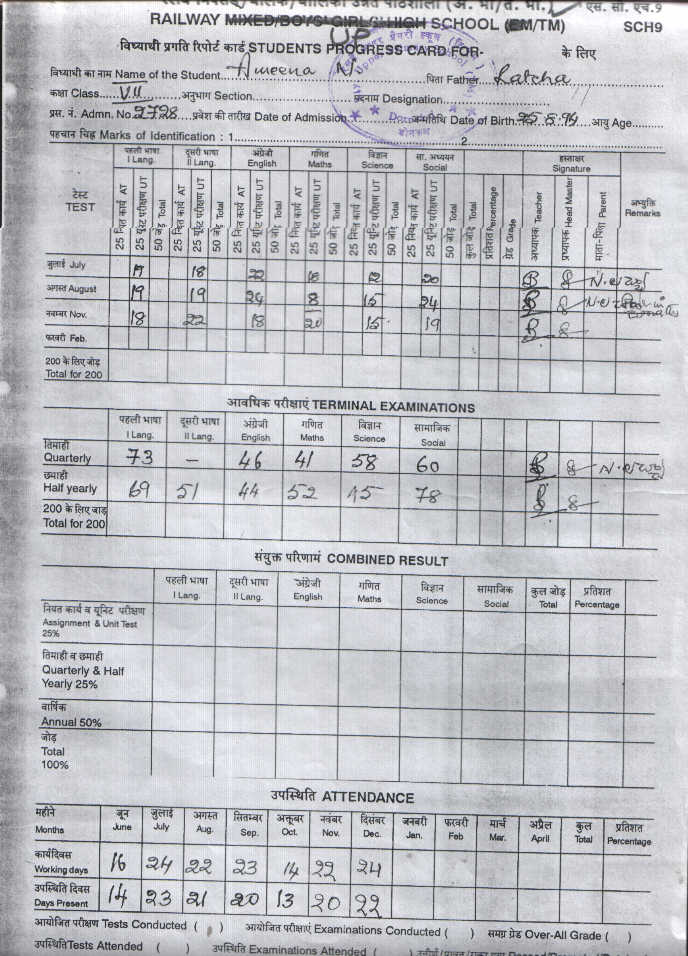 एस. सी. एच.9
RAILWAY MIXED/BOY'S' GIRL'S' HIGH SCHOOL (EM/TM) SCH9
UP
विध्याथी प्रगति रिपोर्ट कार्ड STUDENTS PROGRESS CARD FOR- के लिए
विध्याथी का नाम Name of the Student Ameena N पिता Father Latcha
कक्षा Class VII अनुभाग Section पदनाम Designation
प्रस. नं. Admn. No. 2728 प्रवेश की तारीख Date of Admission जन्मतिथि Date of Birth 25.5.94 आयु Age
पहचान चिह्न Marks of Identification : 1 2
टेस्ट TEST पहली भाषा I Lang. दूसरी भाषा II Lang. अंग्रेजी English गणित Maths विज्ञान Science सा. अध्ययन Social हस्ताक्षर Signature
25 नित कार्य AT 25 यूनिट परीक्षण UT 50 जोड़ Total 25 नित कार्य AT 25 यूनिट परीक्षण UT 50 जोड़ Total 25 नित कार्य AT 25 यूनिट परीक्षण UT 50 जोड़ Total 25 नित कार्य AT 25 यूनिट परीक्षण UT 50 जोड़ Total 25 नित कार्य AT 25 यूनिट परीक्षण UT 50 जोड़ Total 25 नित कार्य AT 25 यूनिट परीक्षण UT 50 जोड़ Total कुल जोड़ Total प्रतिशत Percentage ग्रेड Grade अध्यापक Teacher प्रध्यापक Head Master माता-पिता Parent अभ्युक्ति Remarks
जुलाई July 17 18 22 18 12 20
अगस्त August 19 19 24 8 15 24
नवम्बर Nov. 18 22 18 20 15 19
फरवरी Feb.
200 के लिए जोड़
Total for 200
आवधिक परीक्षाएं TERMINAL EXAMINATIONS
पहली भाषा दूसरी भाषा अंग्रेजी गणित विज्ञान सामाजिक
I Lang. II Lang. English Maths Science Social
तिमाही
Quarterly 73 – 46 41 58 60
छमाही
Half yearly 69 51 44 52 45 78
200 के लिए जाड़
Total for 200
संयुक्त परिणामं COMBINED RESULT
पहली भाषा दूसरी भाषा अंग्रेजी गणित विज्ञान सामाजिक कुल जोड़ प्रतिशत
I Lang. II Lang. English Maths Science Social Total Percentage
नियत कार्य व यूनिट परीक्षण
Assignment & Unit Test
25%
तिमाही व छमाही
Quarterly & Half
Yearly 25%
वार्षिक
Annual 50%
जोड़
Total
100%
उपस्थिति ATTENDANCE
महीने जून जुलाई अगस्त सितम्बर अक्तूबर नवंबर दिसंबर जनवरी फरवरी मार्च अप्रैल कुल प्रतिशत
Months June July Aug. Sep. Oct. Nov. Dec. Jan. Feb Mar. April Total Percentage
कार्यदिवस
Working days 16 24 22 23 14 22 24
उपस्थिति दिवस
Days Present 14 23 21 20 13 20 22
आयोजित परीक्षण Tests Conducted ( ) आयोजित परीक्षाएं Examinations Conducted ( ) समग्र ग्रेड Over-All Grade ( )
उपस्थिति Tests Attended ( ) उपस्थिति Examinations Attended (